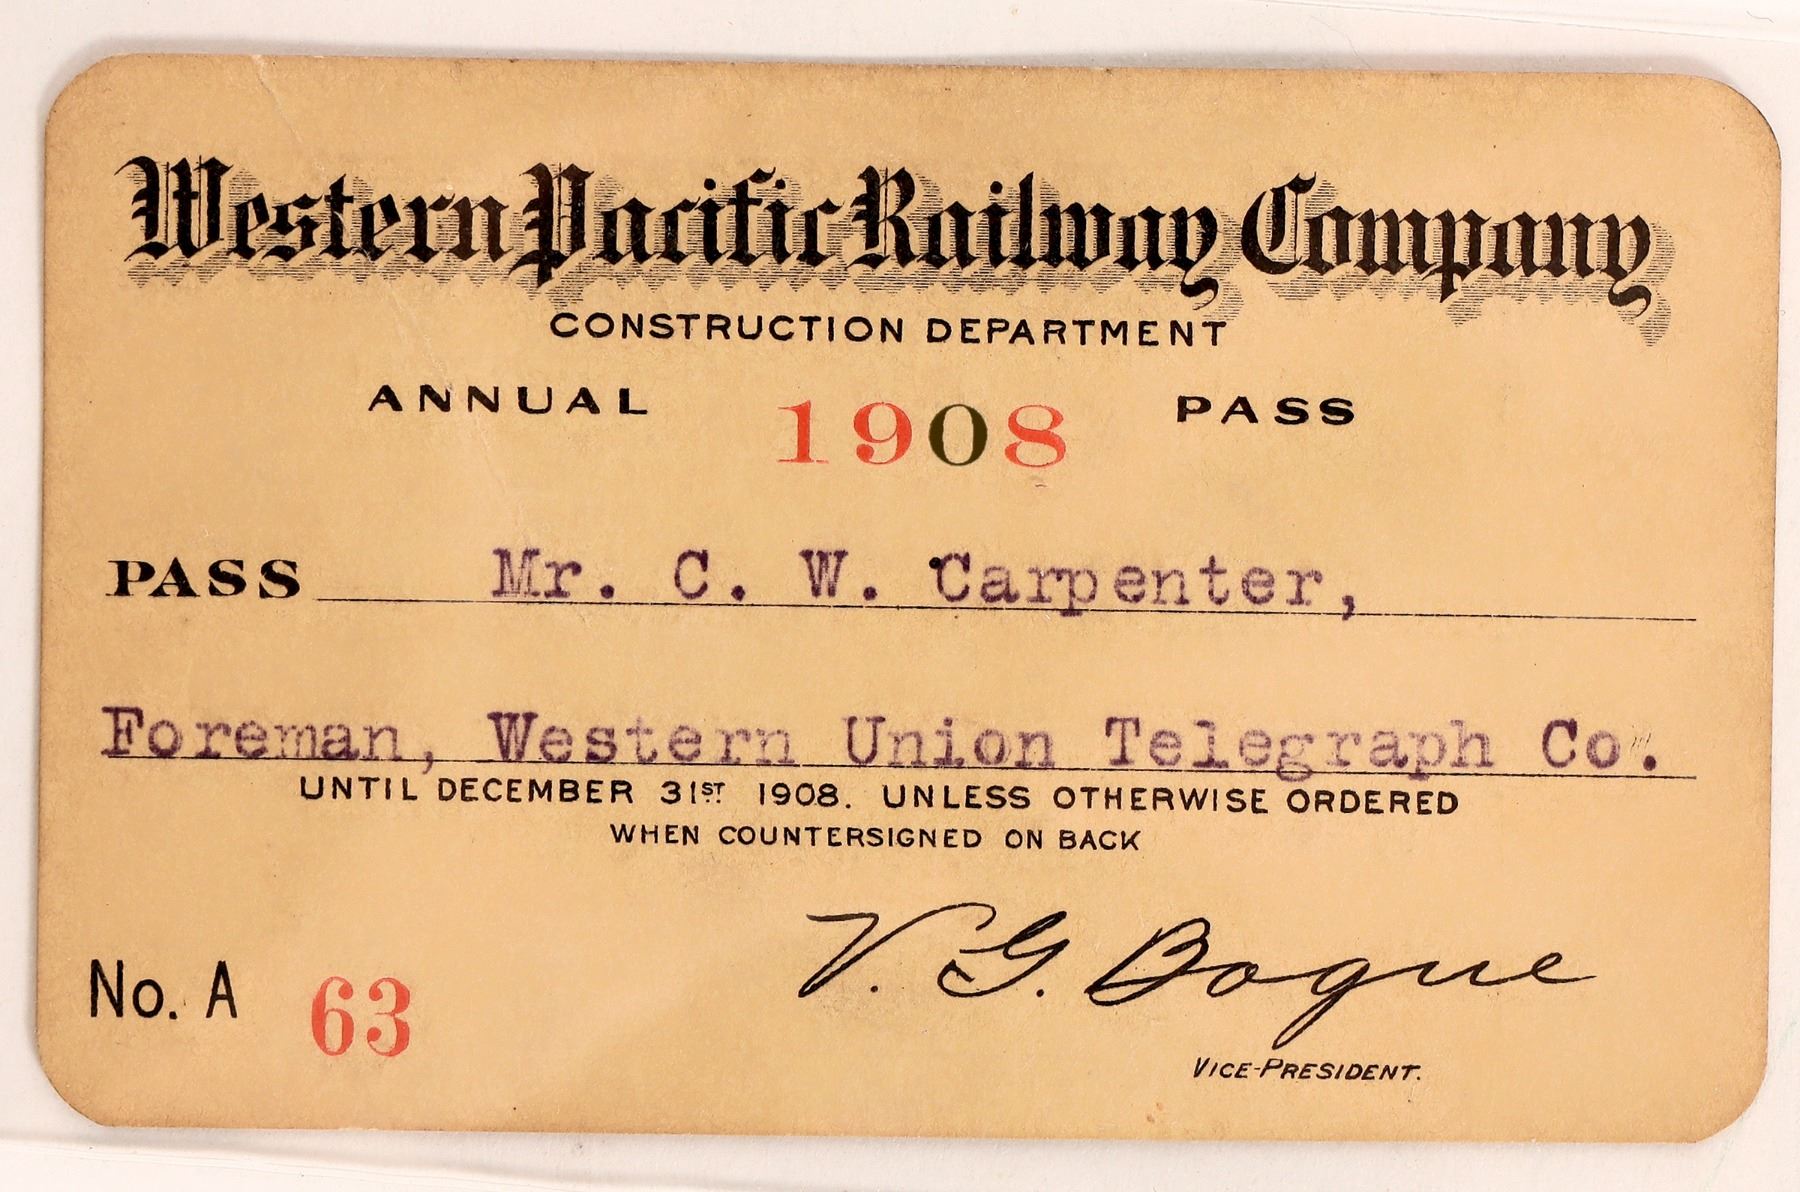 Western Pacific Railway Company
CONSTRUCTION DEPARTMENT
ANNUAL 1908 PASS
PASS Mr. C. W. Carpenter,
Foreman, Western Union Telegraph Co.
UNTIL DECEMBER 31ST 1908. UNLESS OTHERWISE ORDERED
WHEN COUNTERSIGNED ON BACK
V. G. Bogue
No. A 63
VICE-PRESIDENT.